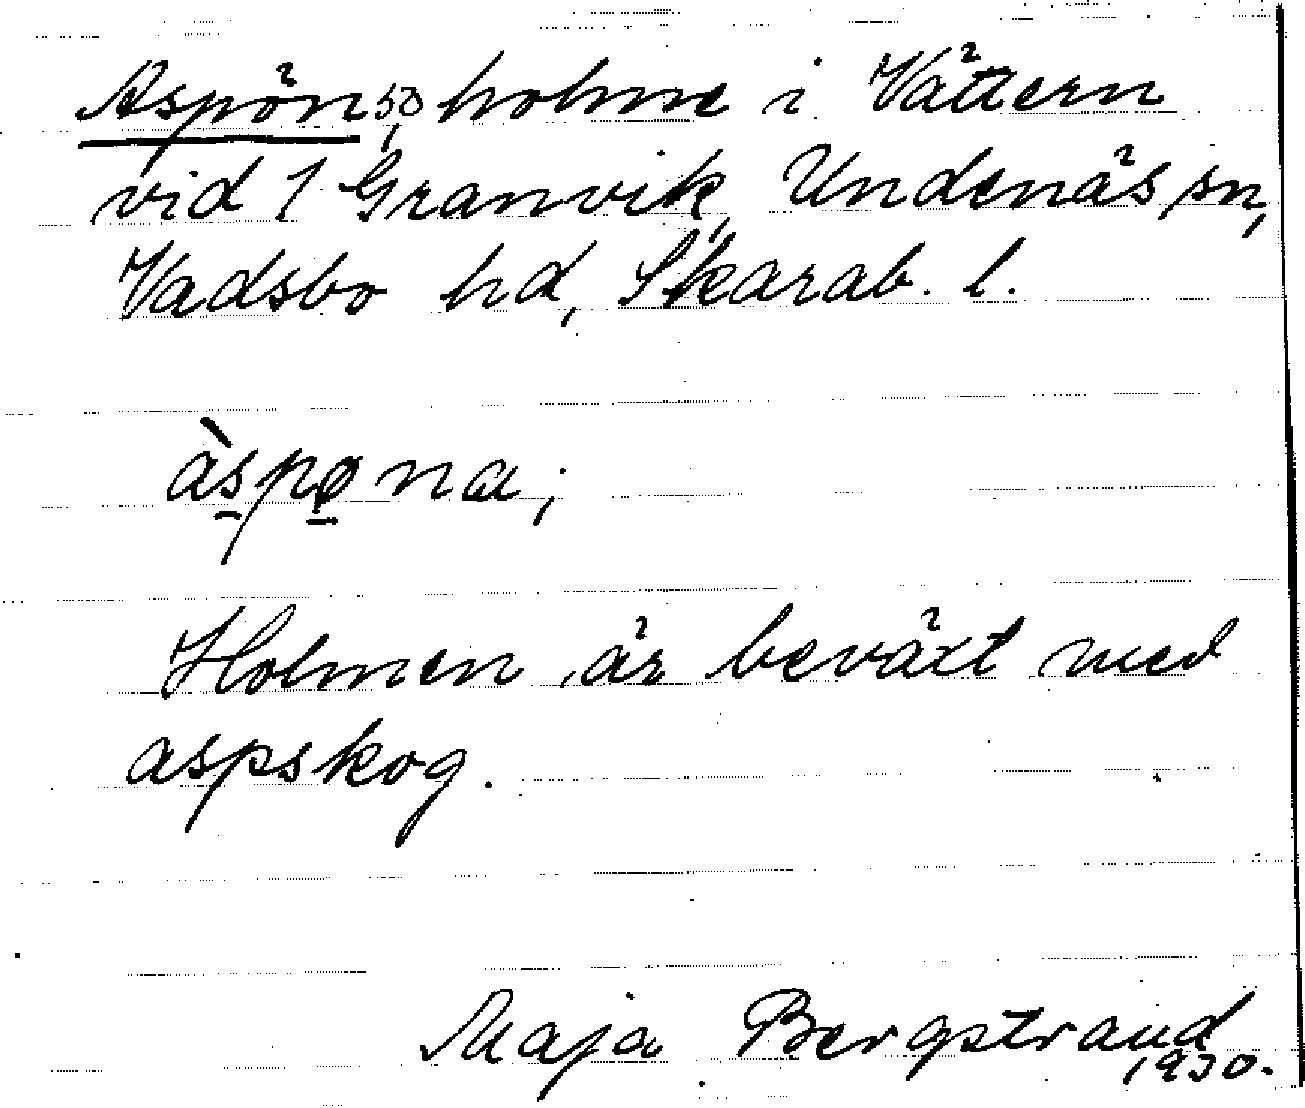 Aspön, 50 holme i Vättern
vid 1 Granvik, Undenäs sn,
Vadsbo hd, Skarab. l.
àspøna;
Holmen är beväxt med
aspskog.
Maja Bergstrand
1930.